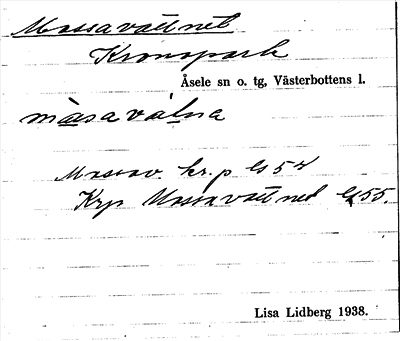 Massavattnet
Kronopark
Åsele sn o. tg, Västerbottens l.
màsavátna
Massav. kr.p GS 54
Krp Massavattned GS 55.
Lisa Lidberg 1938.